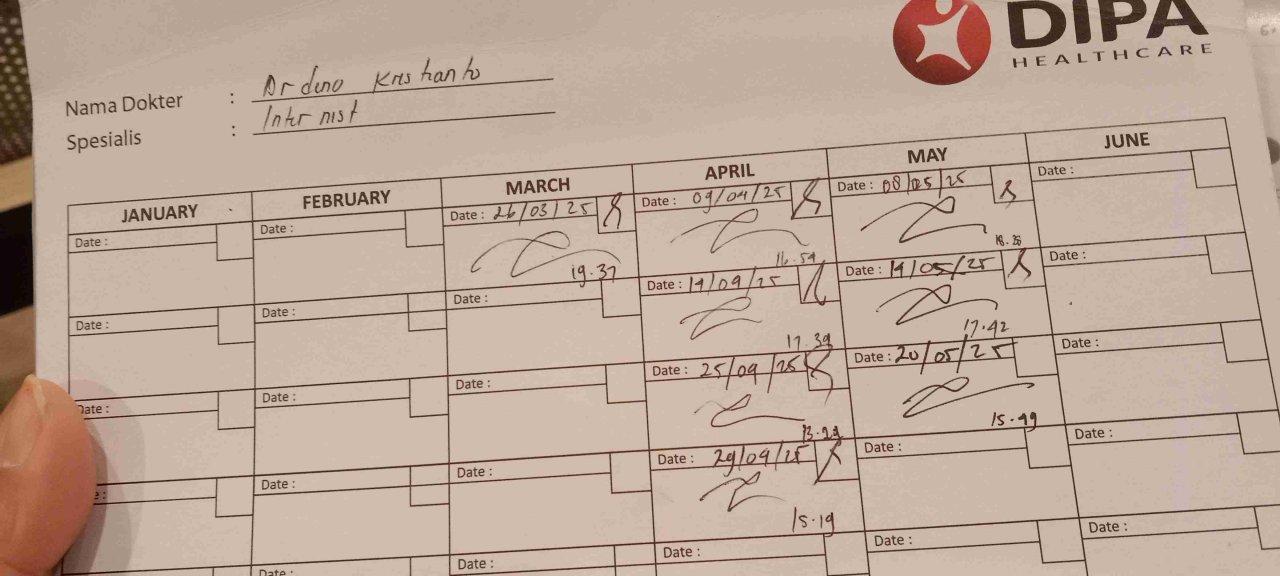 DIPA
HEALTHCARE
Nama Dokter : Dr deno Kristianto
Spesialis : Internist
JANUARY FEBRUARY MARCH APRIL MAY JUNE
Date : Date : Date : 26/03/25 Date : 09/04/25 Date : 08/05/25 Date :
19.37 16.59 18.26
Date : Date : Date : Date : 14/04/25 Date : 14/05/25 Date :
17.39 17.42
Date : Date : Date : Date : 25/04/25 Date : 20/05/25 Date :
15.49
Date : Date : Date : 29/04/25 Date : Date :
15.19
Date : Date : Date : Date : Date :